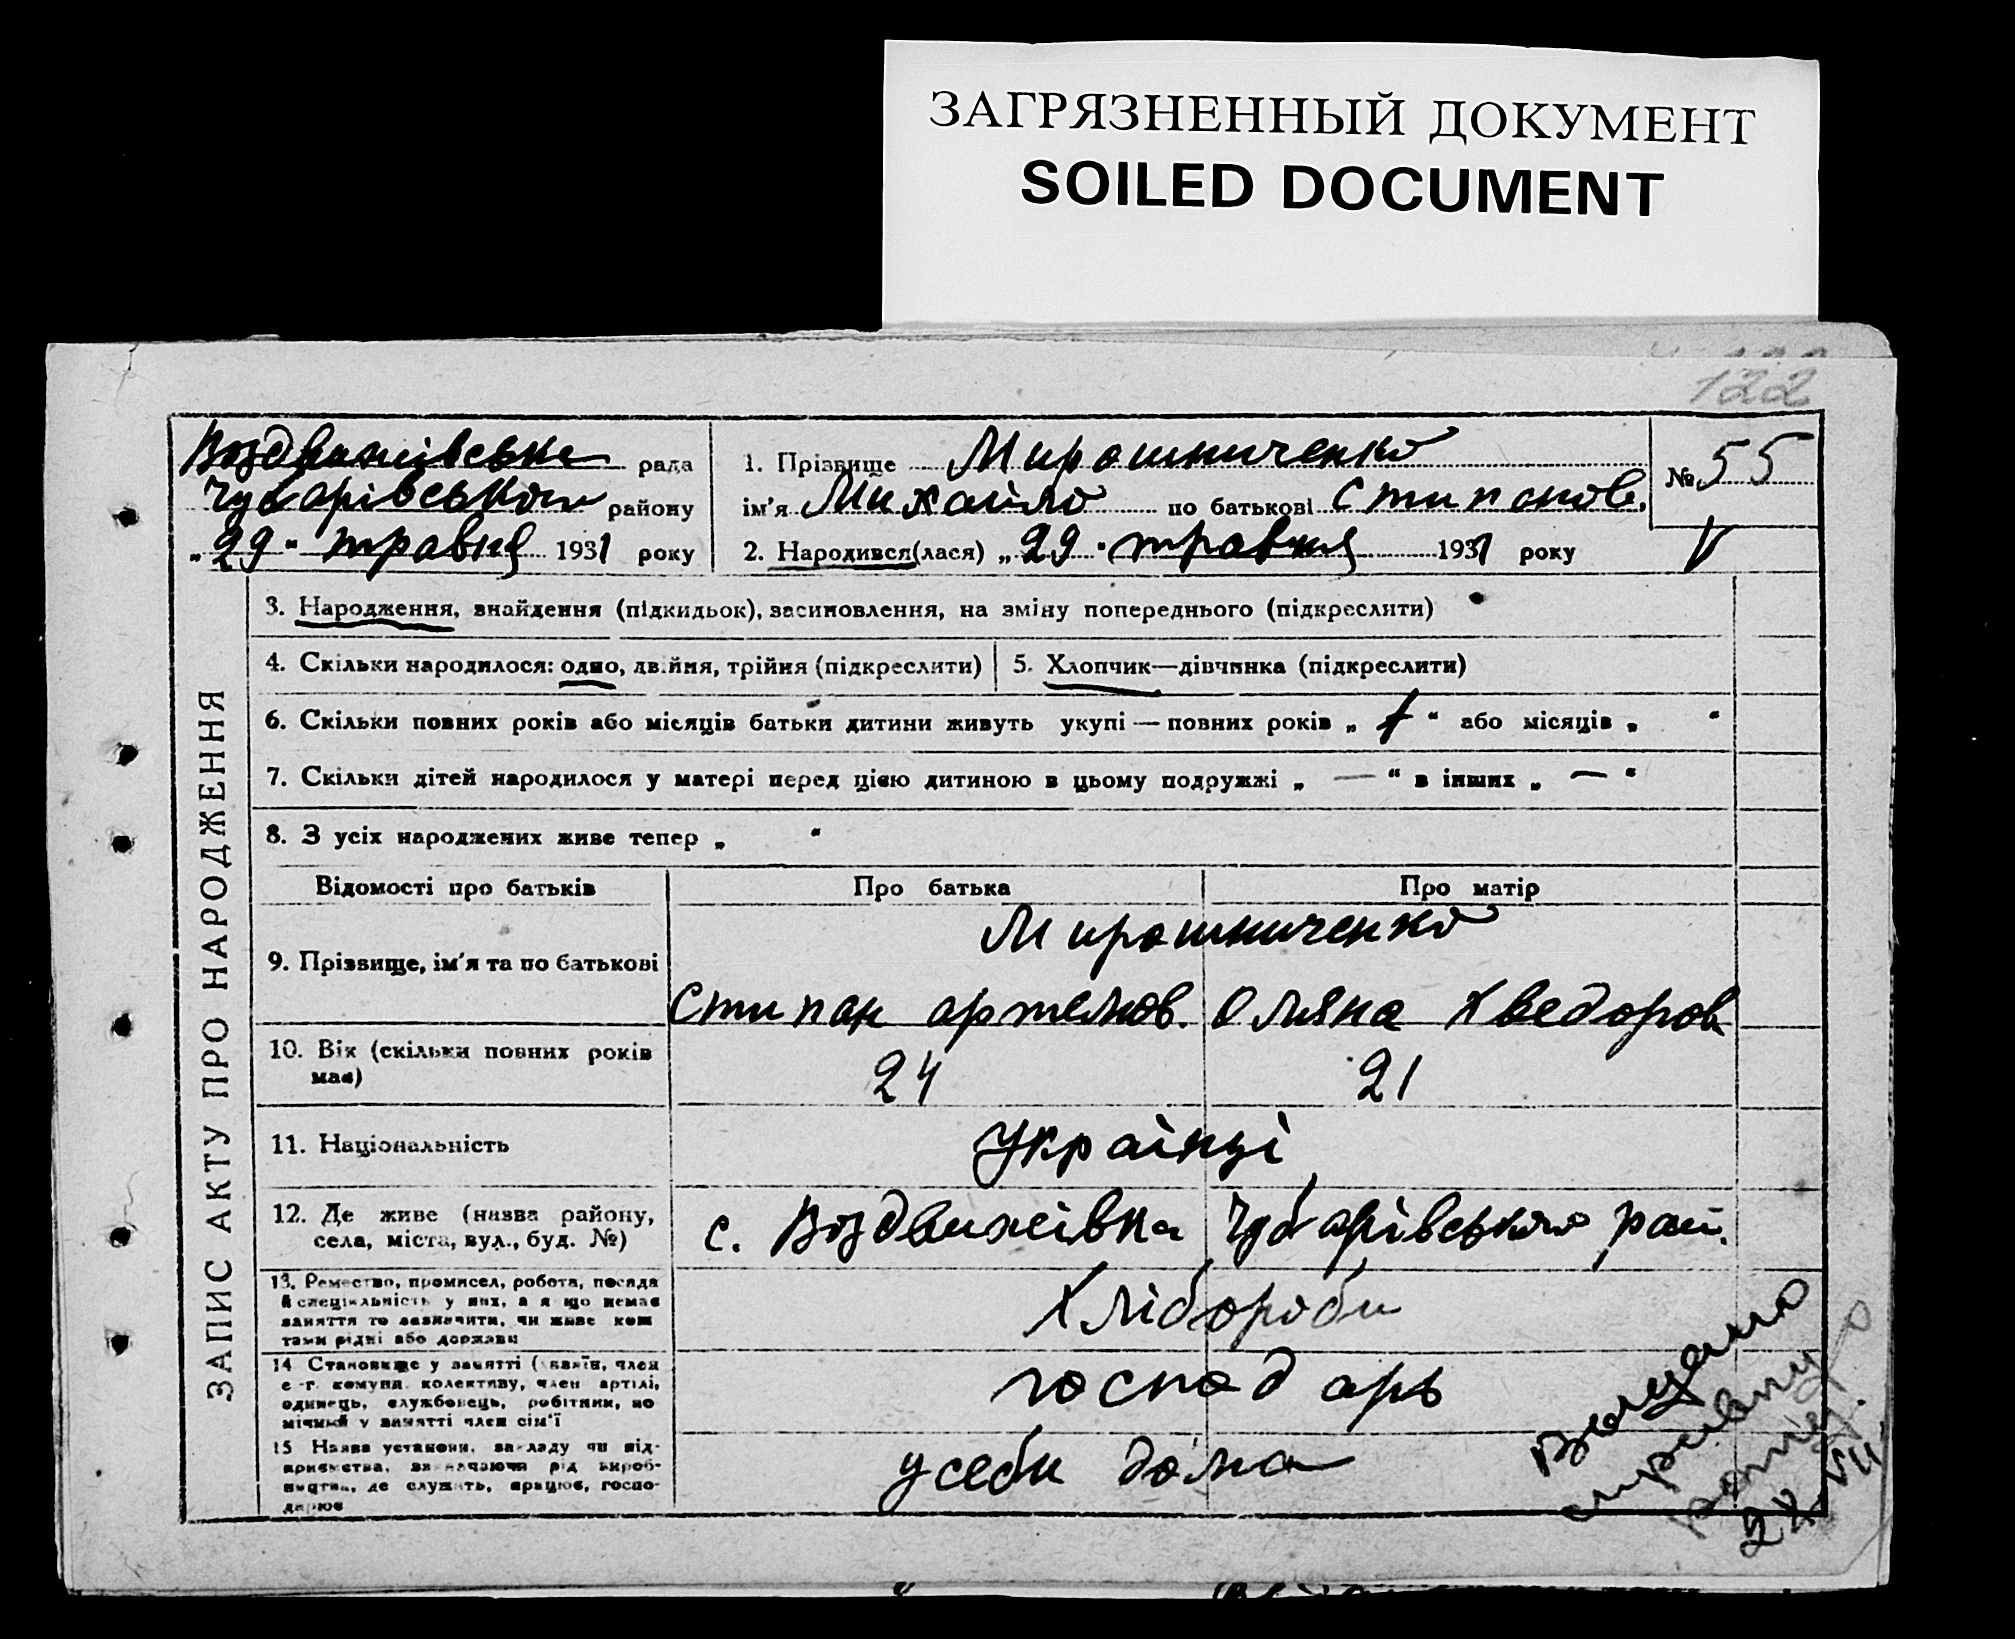 ЗАГРЯЗНЕННЫЙ ДОКУМЕНТ
SOILED DOCUMENT
122
Воздвижівська рада
Чубарівського району
„29“ травня 1931 року
1. Прізвище Мирошниченко
ім'я Михайло по батькові Стипанов.
2. Народився(лася) „29“ травня 1931 року
№ 55
V
ЗАПИС АКТУ ПРО НАРОДЖЕННЯ
3. Народження, знайдення (підкидьок), засиновлення, на зміну попереднього (підкреслити)
4. Скільки народилося: одно, двійня, трійня (підкреслити)
5. Хлопчик—дівчинка (підкреслити)
6. Скільки повних років або місяців батьки дитини живуть укупі — повних років „ 1 “ або місяців „ “
7. Скільки дітей народилося у матері перед цією дитиною в цьому подружжі „ — “ в інших „ — “
8. З усіх народжених живе тепер „ “
Відомості про батьків Про батька Про матір
9. Прізвище, ім'я та по батькові
Мирошниченко
Стипан Артемов. Оляна Хведоров
10. Вік (скільки повних років має)
24 21
11. Національність
Українці
12. Де живе (назва району,
села, міста, вул., буд. №)
с. Воздвижівка Чубарівського рай.
13. Ремество, промисел, робота, посада
й спеціяльність у них, а якщо немає
заняття то зазначити, чи живе кош
тами рідні або держави
Хлібороби
14 Становище у занятті (хазяїн, член
с.-г. комуни, колективу, член артілі,
одинець, службовець, робітник, по
мічний у занятті член сім'ї
господарь
15 Назва установи, закладу чи під-
приємства, зазначаючи рід вироб-
ництва, де служить, працює, госпо-
дарює
усеби дома
Видано
справку